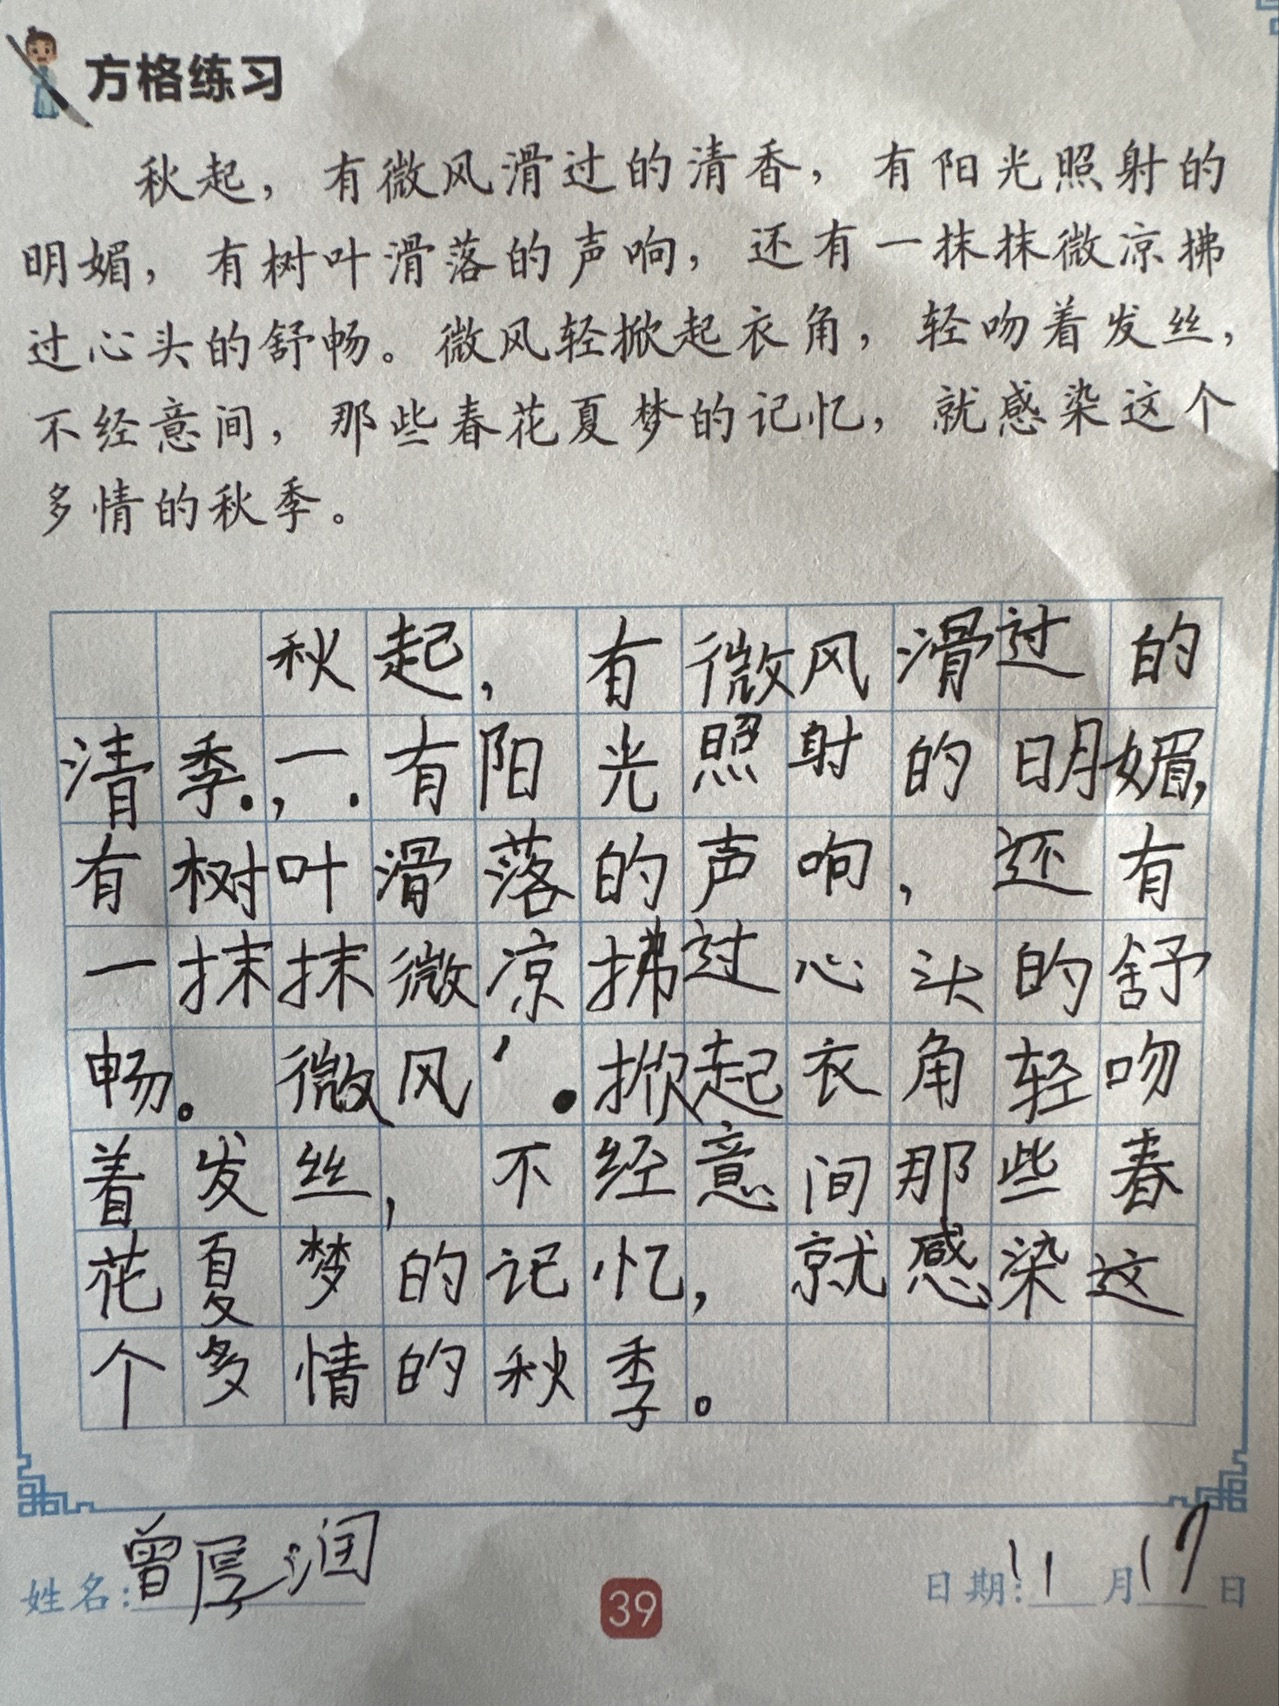 方格练习
秋起，有微风滑过的清香，有阳光照射的
明媚，有树叶滑落的声响，还有一抹抹微凉拂
过心头的舒畅。微风轻掀起衣角，轻吻着发丝，
不经意间，那些春花夏梦的记忆，就感染这个
多情的秋季。
秋起，有微风滑过的
清季，一.有阳光照射的明媚，
有树叶滑落的声响，还有
一抹抹微凉拂过心头的舒
畅。微风掀起衣角轻吻
着发丝，不经意间那些春
花夏梦的记忆，就感染这
个多情的秋季。
姓名：曾厚润
39
日期：11月17日